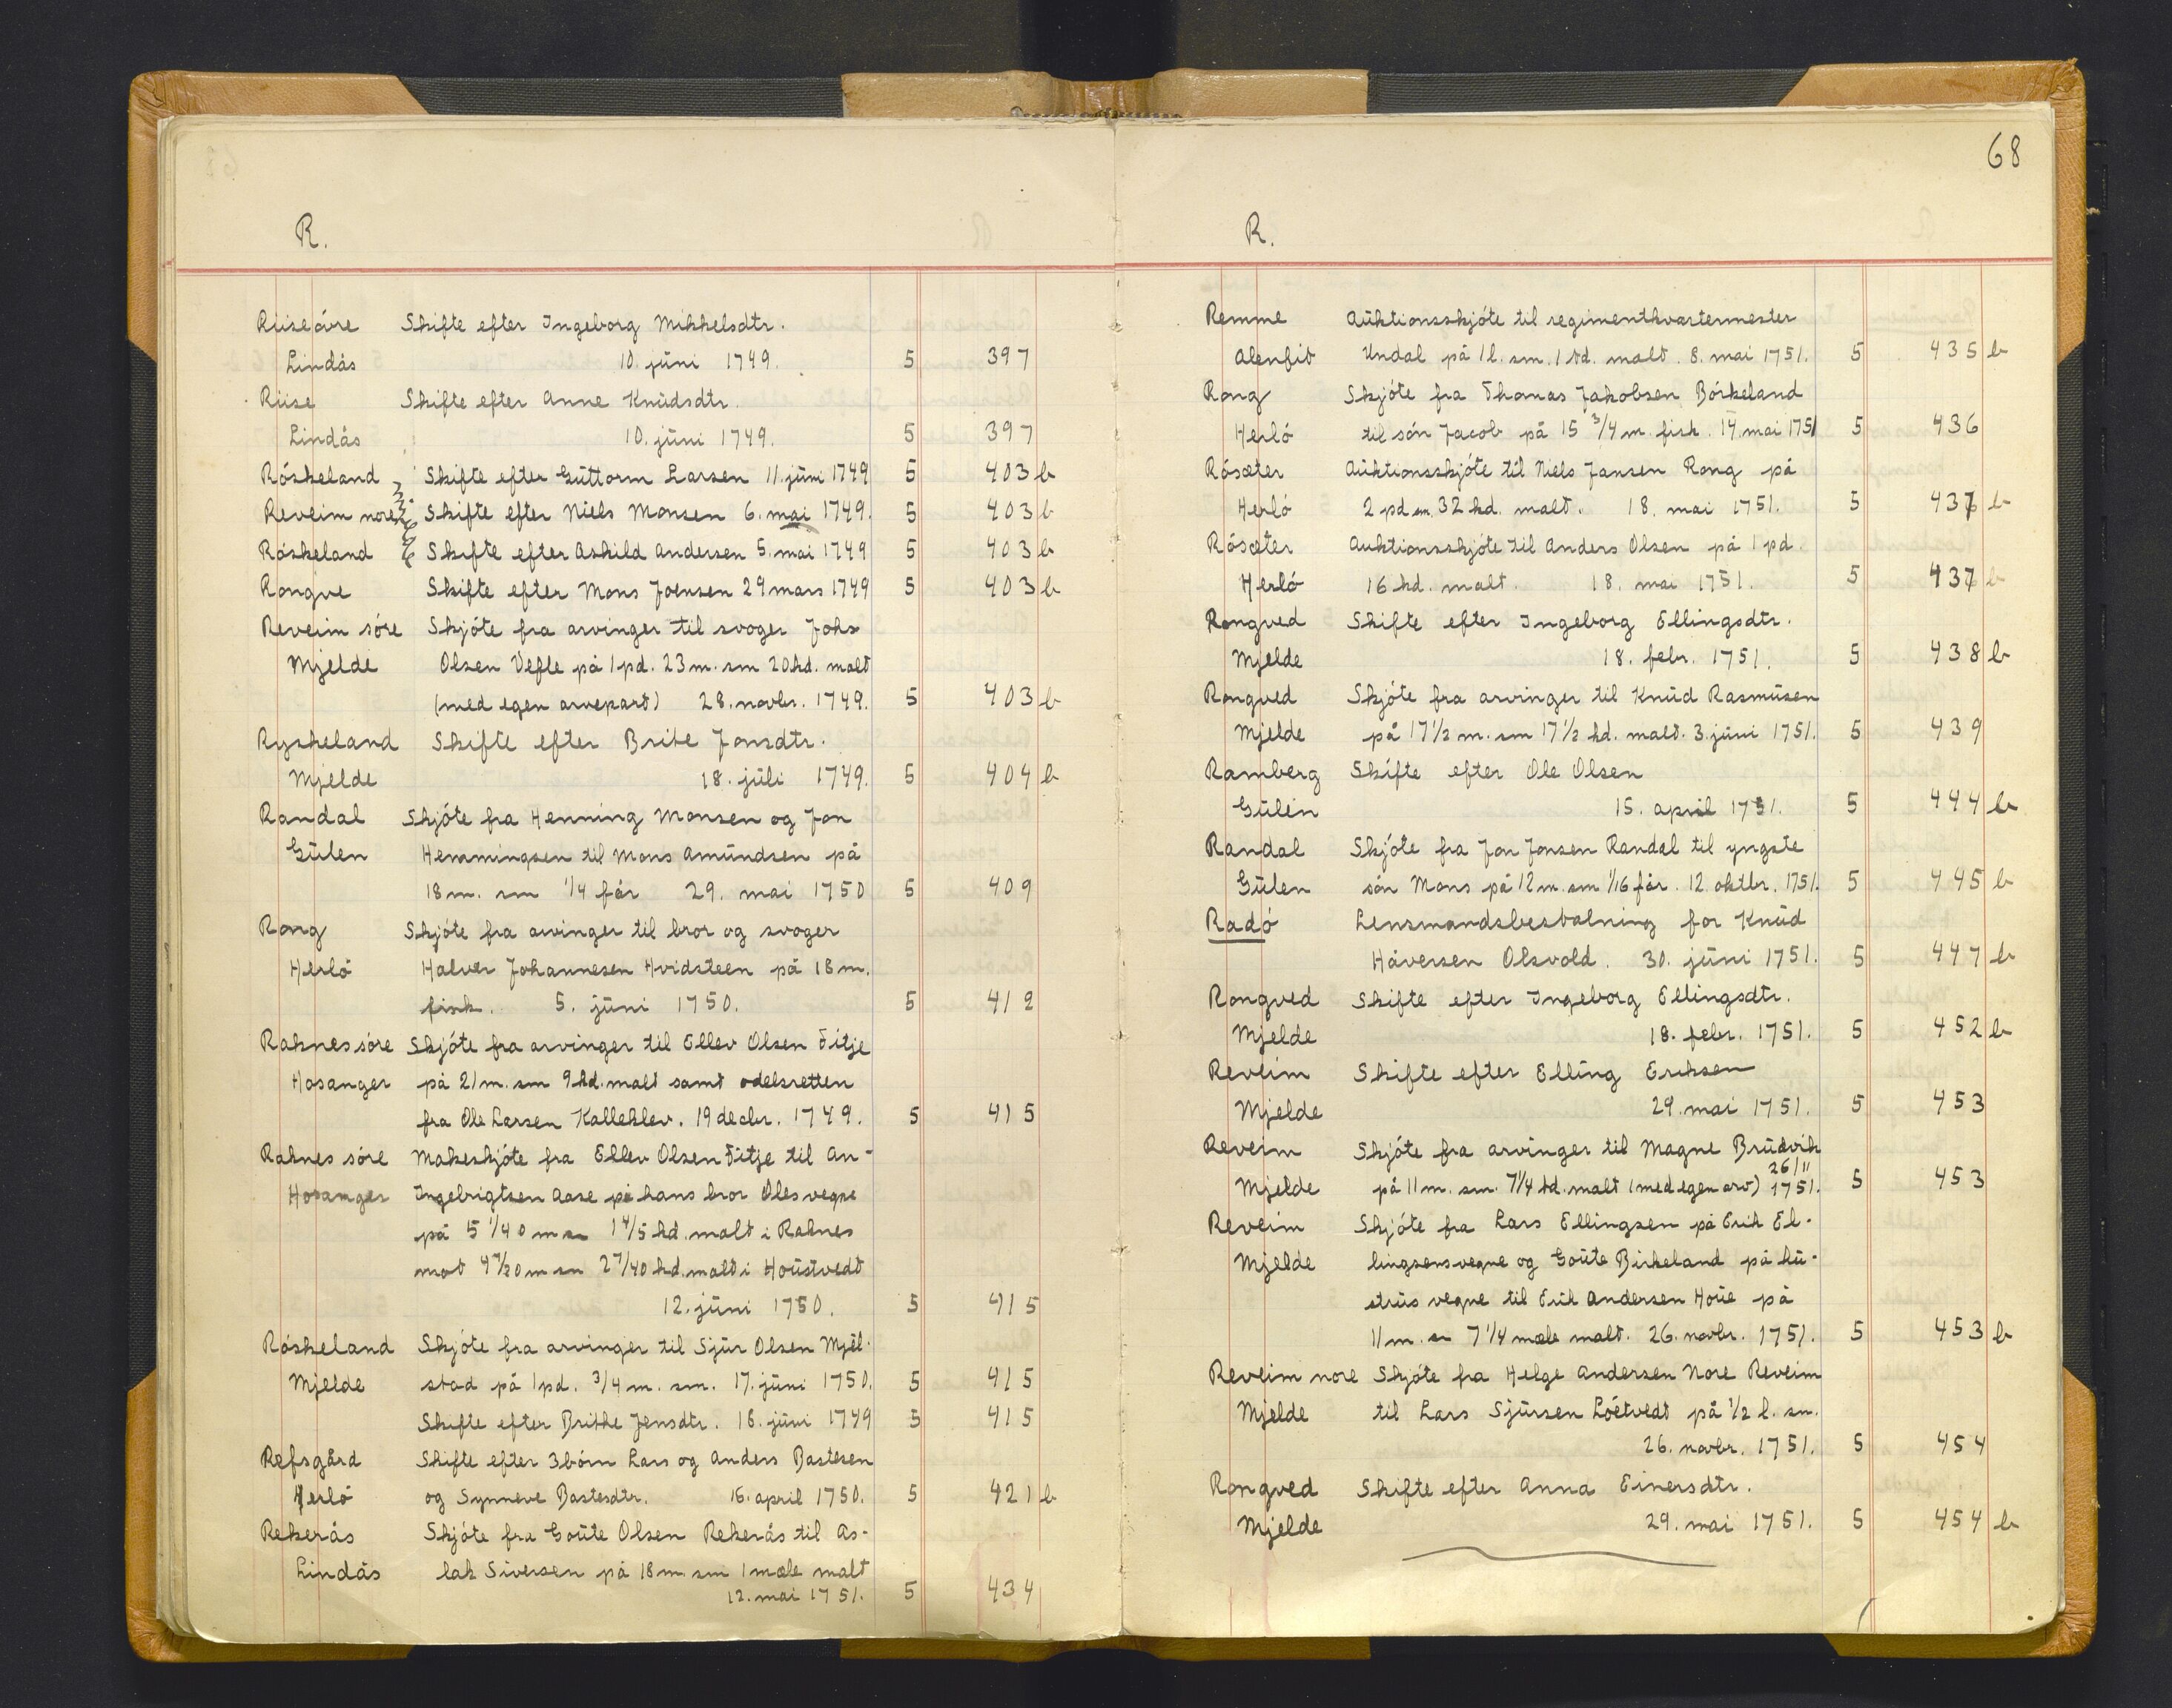 R.
Riise övre Skifte efter Ingeborg Mikkelsdtr.
Lindås 10. jüni 1749. 5 397
Riise Skifte efter Anne Knüdsdtr.
Lindås 10. jüni 1749. 5 397
Röskeland Skifte efter Güttorm Larsen 11. jüni 1749 5 403 b
Reveim nore Skifte efter Niels Monsen 6. mai 1749. 5 403 b
Röskeland Skifte efter Askild Andersen 5. mai 1749 5 403 b
Rongve Skifte efter Mons Joensen 29 mars 1749 5 403 b
Reveim söre Skjöte fra arvinger til svoger Johs
Mjelde Olsen Vefle på 1 pd. 23 m. sm 20 hd. malt
(med egen arvepart) 28. novbr. 1749. 5 403 b
Ryskeland Skifte efter Brite Jonsdtr.
Mjelde 18. jüli 1749. 5 404 b
Randal Skjöte fra Henning Monsen og Jon
Gülen Hemmingsen til Mons Amündsen på
18 m. sm 1/4 får 29. mai 1750 5 409
Rong Skjöte fra arvinger til bror og svoger
Herlö Halver Johannesen Hvidsteen på 18 m.
fisk. 5. jüni 1750. 5 412
Raknes söre Skjöte fra arvinger til Ellev Olsen Fitje
Hosanger på 21 m. sm 9 hd. malt samt odelsretten
fra Ole Larsen Kalleklev. 19 decbr. 1749. 5 415
Raknes söre Makeskjöte fra Ellev Olsen Fitje til An-
Hosanger Ingebrigtsen Aase på hans bror Oles vegne
på 5 1/40 m sm 1 4/5 hd. malt i Raknes
mot 4 7/20 m sm 2 7/40 hd. malt i Hoüstvedt
12. jüni 1750. 5 415
Röskeland Skjöte fra arvinger til Sjür Olsen Mjel-
Mjelde stad på 1 pd. 3/4 m. sm. 17. jüni 1750. 5 415
Skifte efter Brithe Jensdtr. 16. jüni 1749 5 415
Refsgård Skifte efter 3 börn Lars og Anders Bastesen
Herlö og Synneve Bastesdtr. 16. april 1750. 5 421 b
Rekerås Skjöte fra Goüte Olsen Rekerås til As-
Lindås lak Siversen på 18 m. sm 1 mæle malt
12. mai 1751. 5 434
68
R.
Remme Aüktionsskjöte til regimentkvartermester
Alenfit Undal på 1 l. sm. 1 td. malt. 8. mai 1751. 5 435 b
Rong Skjöte fra Thomas Jakobsen Börkeland
Herlö til sön Jacob på 15 3/4 m. fisk. 14. mai 1751 5 436
Rösæter Aüktionsskjöte til Niels Jansen Rong på
Herlö 2 pd sm. 32 kd. malt. 18. mai 1751. 5 437 b
Rösæter Auktionsskjöte til Anders Olsen på 1 pd.
Herlö 16 kd. malt. 18. mai 1751. 5 437 b
Rongved Skifte efter Ingeborg Ellingsdtr.
Mjelde 18. febr. 1751. 5 438 b
Rongved Skjöte fra arvinger til Knüd Rasmüsen
Mjelde på 17 1/2 m. sm 17 1/2 kd. malt. 3. jüni 1751. 5 439
Ramberg Skifte efter Ole Olsen
Gülen 15. april 1751. 5 444 b
Randal Skjöte fra Jon Jonsen Randal til yngste
Gülen sön Mons på 12 m. sm 1/16 får. 12. oktbr. 1751. 5 445 b
Radö Lensmandsbestalning for Knüd
Håversen Olsvold. 30. jüni 1751. 5 447 b
Rongved Skifte efter Ingeborg Ellingsdtr.
Mjelde 18. febr. 1751. 5 452 b
Reveim Skifte efter Elling Eriksen
Mjelde 29. mai 1751. 5 453
Reveim Skjöte fra arvinger til Magne Brüdvik
Mjelde på 11 m. sm. 7 1/4 kd. malt (med egen arv) 26/11 1751. 5 453
Reveim Skjöte fra Lars Ellingsen på Erik El-
Mjelde lingsens vegne og Goüte Birkeland på hü-
strüs vegne til Erik Andersen Hoüe på
11 m. sm 7 1/4 mæle malt. 26. novbr. 1751. 5 453 b
Reveim nore Skjöte fra Helge Andersen Nore Reveim
Mjelde til Lars Sjürsen Löetvedt på 1/2 l. sm.
26. novbr. 1751. 5 454
Rongved Skifte efter Anna Einersdtr.
Mjelde 29. mai 1751. 5 454 b